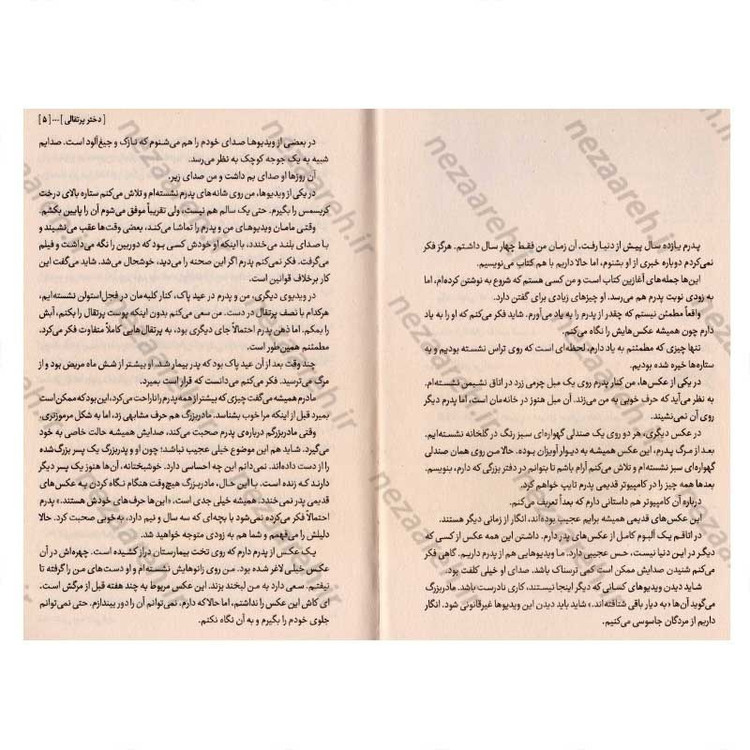 پدرم یازده سال پیش از دنیا رفت. آن زمان من فقط چهار سال داشتم. هرگز فکر
نمی‌کردم دوباره خبری از او بشنوم، اما حالا داریم با هم کتاب می‌نویسیم.
این‌ها جمله‌های آغازین کتاب است و من کسی هستم که شروع به نوشتن کرده‌ام، اما
به زودی نوبت پدرم هم می‌رسد. او چیزهای زیادی برای گفتن دارد.
واقعاً مطمئن نیستم که چقدر از پدرم را به یاد می‌آورم. شاید فکر می‌کنم که او را به یاد
دارم چون همیشه عکس‌هایش را نگاه می‌کنم.
تنها چیزی که مطمئنم به یاد دارم، لحظه‌ای است که روی تراس نشسته بودیم و به
ستاره‌ها خیره شده بودیم.
در یکی از عکس‌ها، من کنار پدرم روی یک مبل چرمی زرد در اتاق نشیمن نشسته‌ام.
به نظر می‌آید که حرف خوبی به من می‌زند. آن مبل هنوز در خانه‌مان است، اما پدرم دیگر
روی آن نمی‌نشیند.
در عکس دیگری، هر دو روی یک صندلی گهواره‌ای سبز رنگ در گلخانه نشسته‌ایم.
بعد از مرگ پدرم، این عکس همیشه به دیوار آویزان بوده. حالا من روی همان صندلی
گهواره‌ای سبز نشسته‌ام و تلاش می‌کنم آرام باشم تا بتوانم در دفتر بزرگی که دارم، بنویسم.
بعدها همه چیز را در کامپیوتر قدیمی پدرم تایپ خواهم کرد.
درباره آن کامپیوتر هم داستانی دارم که بعداً تعریف می‌کنم.
این عکس‌های قدیمی همیشه برایم عجیب بوده‌اند، انگار از زمانی دیگر هستند.
در اتاقم یک آلبوم کامل از عکس‌های پدرم دارم. داشتن این همه عکس از کسی که
دیگر در این دنیا نیست، حس عجیبی دارد. ما ویدیوهایی هم از پدرم داریم. گاهی فکر
می‌کنم شنیدن صدایش ممکن است کمی ترسناک باشد. صدای او خیلی کلفت بود.
شاید دیدن ویدیوهای کسانی که دیگر اینجا نیستند، کاری نادرست باشد. مادربزرگ
می‌گوید آن‌ها «به دیار باقی شتافته‌اند.» شاید باید دیدن این ویدیوها غیرقانونی شود. انگار
داریم از مردگان جاسوسی می‌کنیم.
[ دختر پرتقالی ] --- [ ۵ ]
در بعضی از ویدیوها صدای خودم را هم می‌شنوم که نازک و جیغ‌آلود است. صدایم
شبیه به یک جوجه کوچک به نظر می‌رسد.
آن روزها او صدای بم داشت و من صدای زیر.
در یکی از ویدیوها، من روی شانه‌های پدرم نشسته‌ام و تلاش می‌کنم ستاره بالای درخت
کریسمس را بگیرم. حتی یک سالم هم نیست، ولی تقریباً موفق می‌شوم آن را پایین بکشم.
وقتی مامان ویدیوهای من و پدرم را تماشا می‌کند، بعضی وقت‌ها عقب می‌نشیند و
با صدای بلند می‌خندد، با اینکه او خودش کسی بود که دوربین را نگه می‌داشت و فیلم
می‌گرفت. فکر نمی‌کنم پدرم اگر این صحنه را می‌دید، خوشحال می‌شد. شاید می‌گفت این
کار برخلاف قوانین است.
در ویدیوی دیگری، من و پدرم در عید پاک، کنار کلبه‌مان در فجل‌استولن نشسته‌ایم.
هرکدام با نصف پرتقال در دست. من سعی می‌کنم بدون اینکه پوست پرتقال را بکنم، آبش
را بمکم. اما ذهن پدرم احتمالاً جای دیگری بود، به پرتقال‌هایی کاملاً متفاوت فکر می‌کرد.
مطمئنم همین‌طور است.
چند وقت بعد از آن عید پاک بود که پدر بیمار شد. او بیشتر از شش ماه مریض بود و از
مرگ می‌ترسید. فکر می‌کنم می‌دانست که قرار است بمیرد.
مادرم همیشه می‌گفت چیزی که بیشتر از همه پدرم را ناراحت می‌کرد، این بود که ممکن است
بمیرد قبل از اینکه مرا خوب بشناسد. مادربزرگ هم حرف مشابهی زد، اما به شکل مرموزتری.
وقتی مادربزرگم درباره‌ی پدرم صحبت می‌کند، صدایش همیشه حالت خاصی به خود
می‌گیرد. شاید هم این موضوع خیلی عجیب نباشد؛ چون او و پدربزرگ یک پسر بزرگ شده
را از دست داده‌اند. نمی‌دانم این چه احساسی دارد. خوشبختانه، آن‌ها هنوز یک پسر دیگر
دارند که زنده است. با این حال، مادربزرگ هیچ‌وقت هنگام نگاه کردن به عکس‌های
قدیمی پدر نمی‌خندد. همیشه خیلی جدی است. «این‌ها حرف‌های خودش هستند.» پدرم
احتمالاً فکر می‌کرده نمی‌شود با بچه‌ای که سه سال و نیم دارد، به‌خوبی صحبت کرد. حالا
دلیلش را می‌فهمم و شما هم به زودی متوجه خواهید شد.
یک عکس از پدرم دارم که روی تخت بیمارستان دراز کشیده است. چهره‌اش در آن
عکس خیلی لاغر شده بود. من روی زانوهایش نشسته‌ام و او دست‌های من را گرفته تا
نیفتم. سعی دارد به من لبخند بزند. این عکس مربوط به چند هفته قبل از مرگش است.
ای کاش این عکس را نداشتم، اما حالا که دارم، نمی‌توانم آن را دور بیندازم. حتی نمی‌توانم
جلوی خودم را بگیرم و به آن نگاه نکنم.
nezaareh.ir